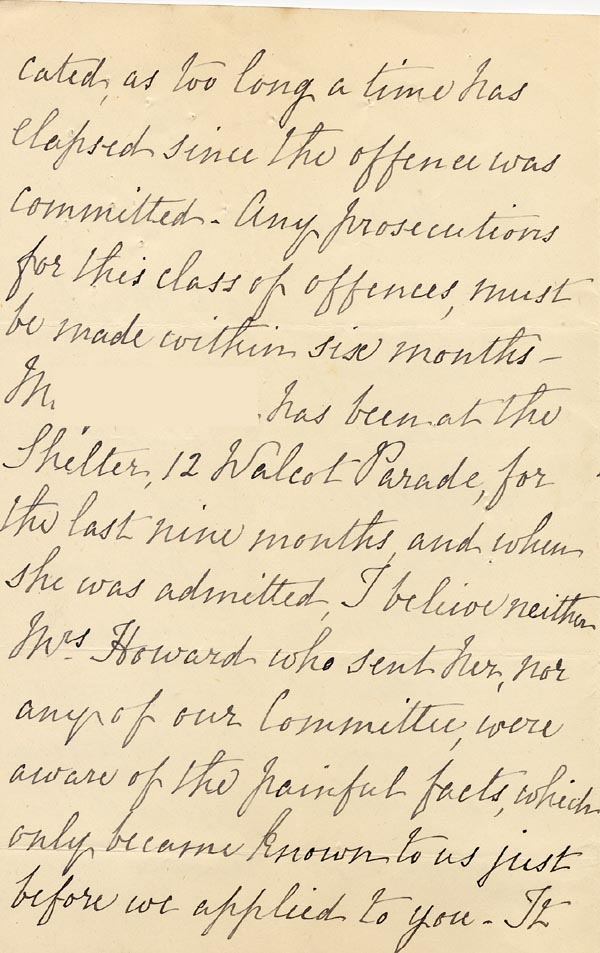 cated, as too long a time has
elapsed since the offence was
committed - Any prosecutions
for this class of offences, must
be made within six months -
M. has been at the
Shelter, 12 Walcot Parade, for
the last nine months, and when
she was admitted, I believe neither
Mrs Howard who sent her, nor
any of our Committee, were
aware of the painful facts, which
only became known to us just
before we applied to you - It